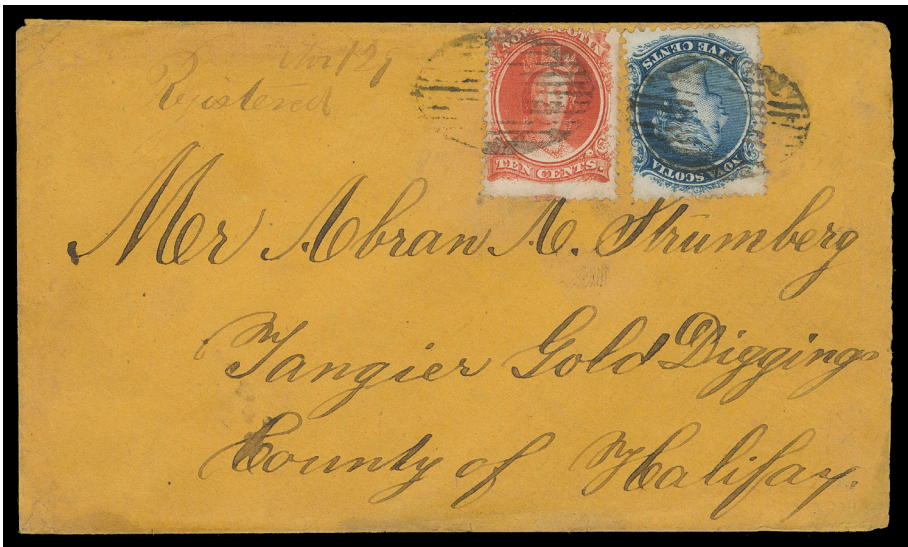 Registered
NOVA SCOTIA
TEN CENTS.
FIVE CENTS
NOVA SCOTIA
Mr Abran A. Strumberg
Tangier Gold Diggings
County of Halifax.